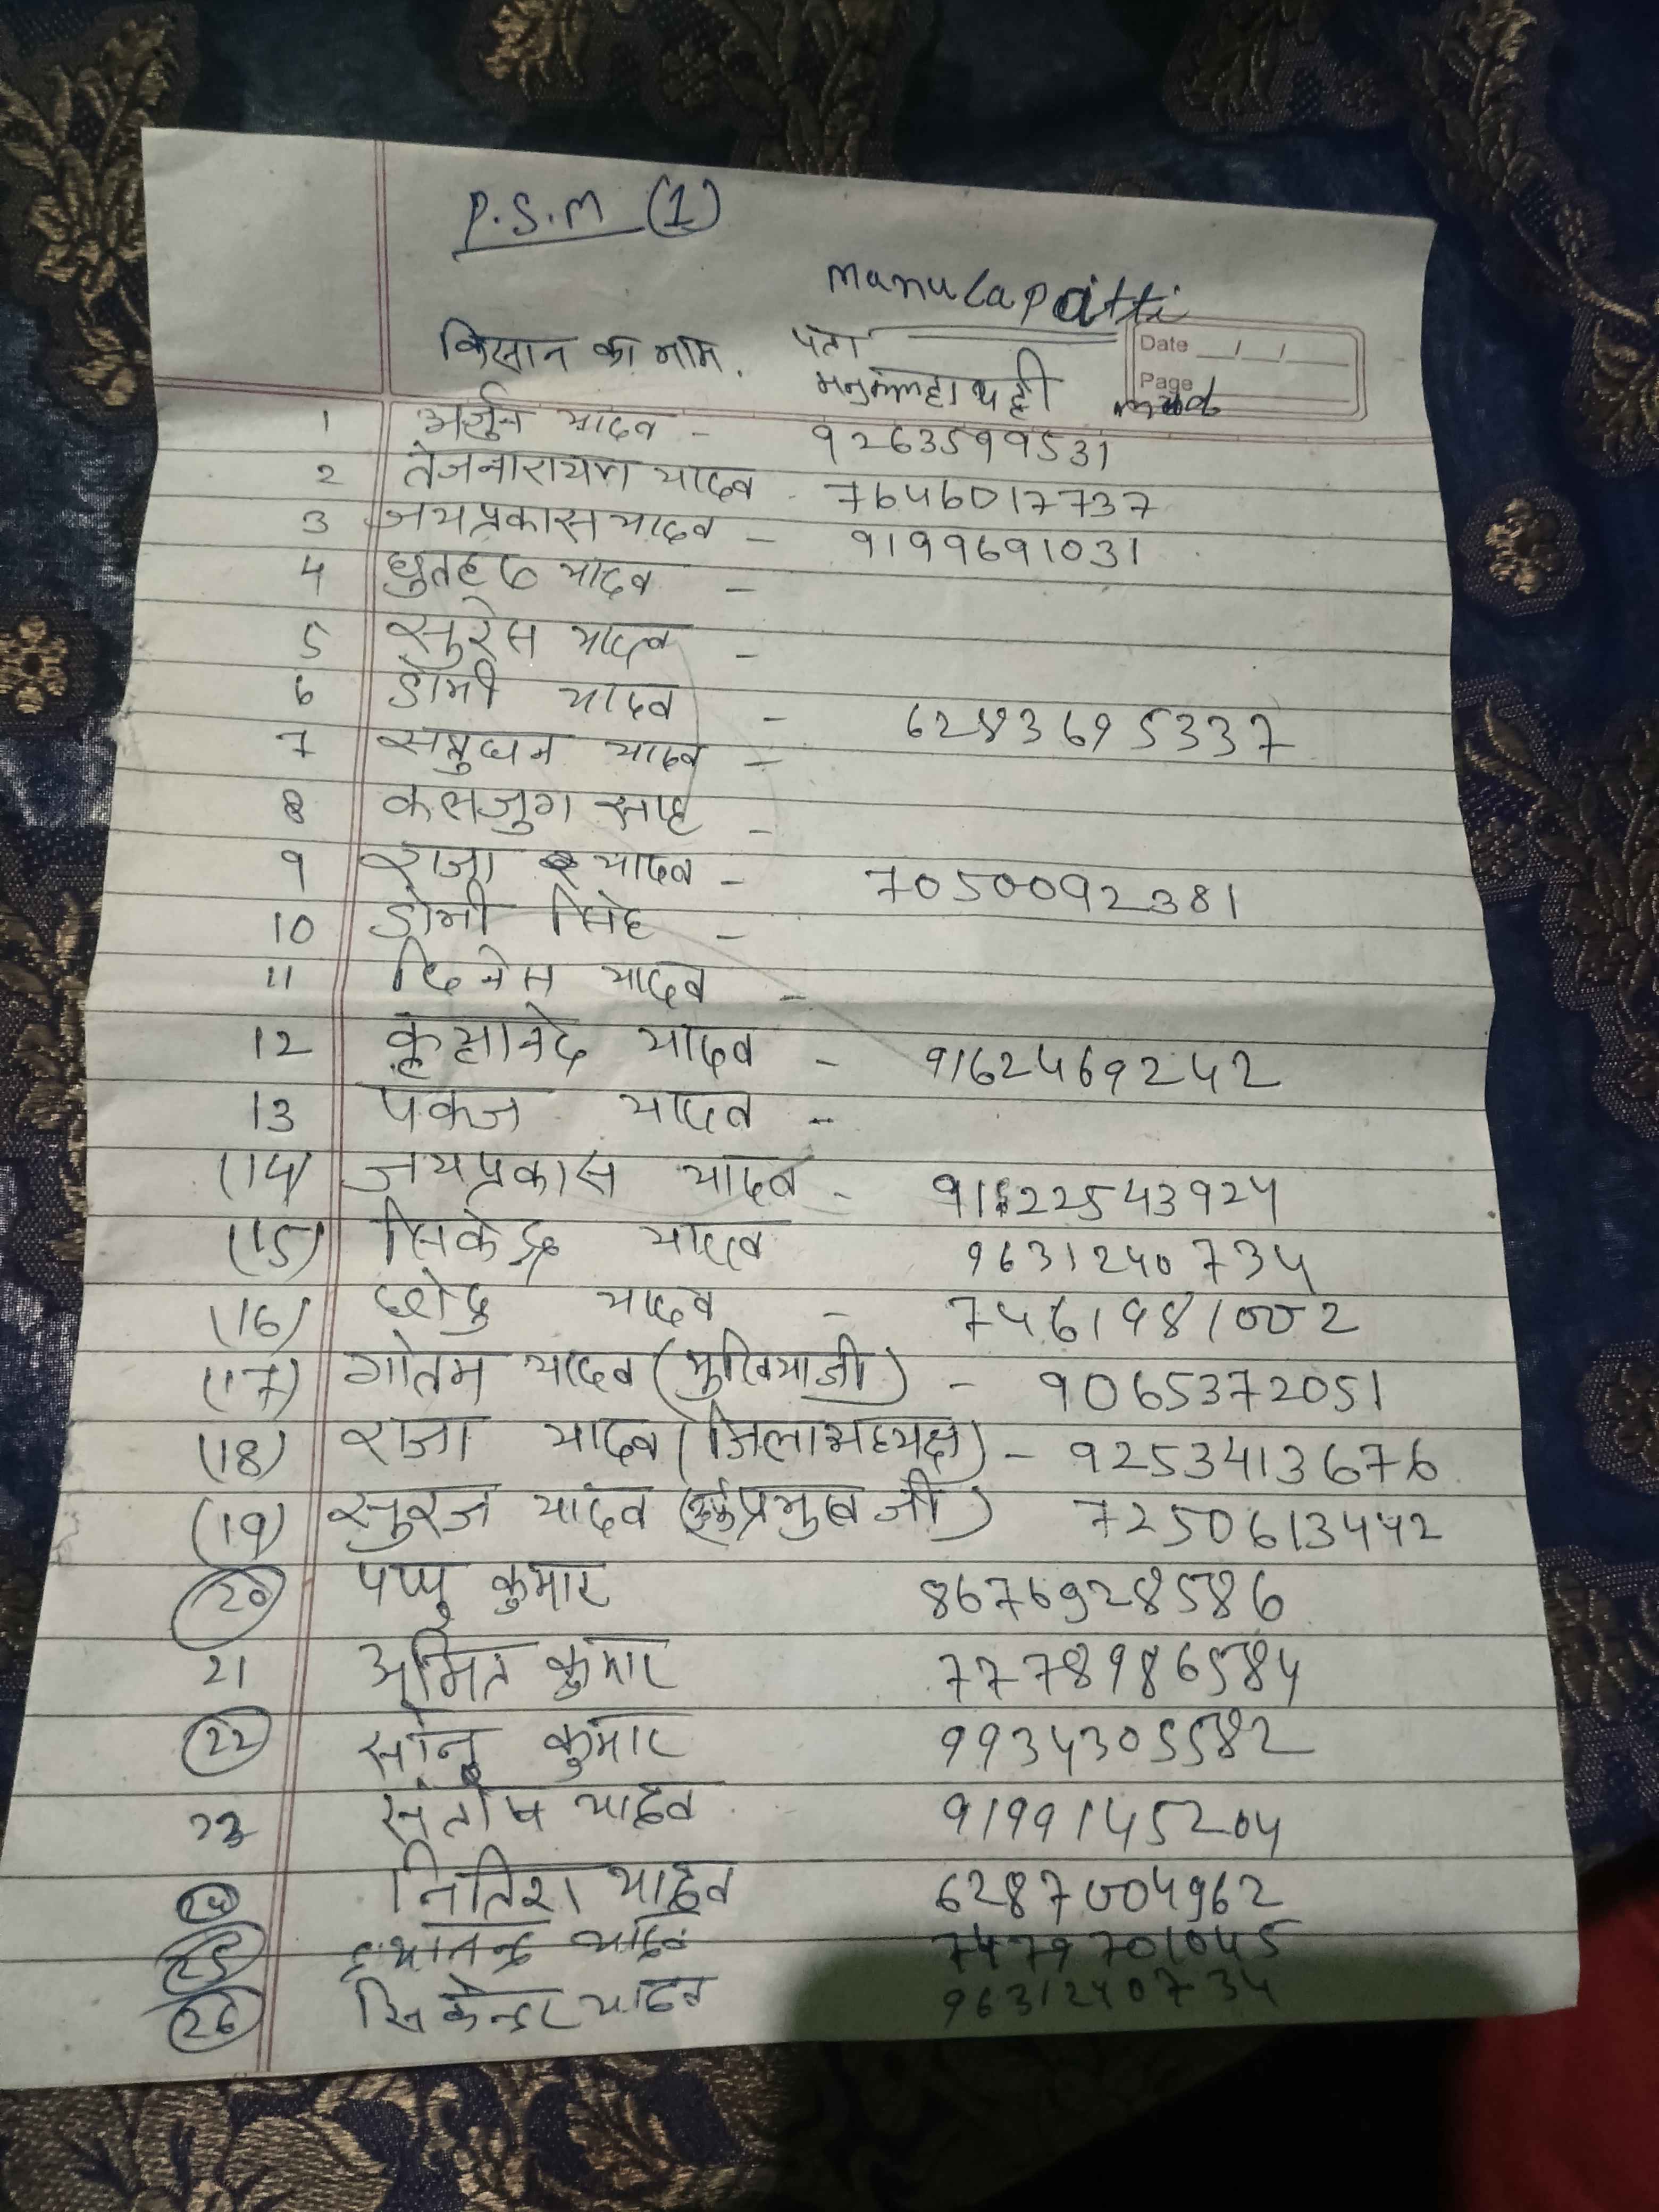 P.S.M (1)
Manulapatti
किसान का नाम. पता
Date / /
Page
1 अर्जुन यादव - 9263599531
2 तेजनारायण यादव - 7646017737
3 जयप्रकास यादव - 9199691031
4 यादव -
5 सुरेस यादव -
6 डोमी यादव - 6283695337
7 सत्रुधन यादव -
8 कलजुग साह -
9 राजा यादव - 7050092381
10 डोमी सिंह -
11 दिनेस यादव -
12 यादव - 9162469242
13 पंकज यादव -
(14) जयप्रकास यादव -
(15) सिकेंद्र यादव 9631240734
(16) छोटु यादव - 7461981002
(17) गोतम यादव (मुखियाजी) - 9065372051
(18) राजा यादव (जिलाअध्यक्ष) - 9253413676
(19) सुरज यादव प्रमुख जी) 7250613442
20 पप्पु कुमार 8676928586
21 अमित कुमार 7778986584
22 सोनु कुमार 9934305582
23 संतोष यादव 9199145204
24 नितिश यादव 6287004962
25 यादव 7479701045
26 सिकेन्दर यादव 9631240734